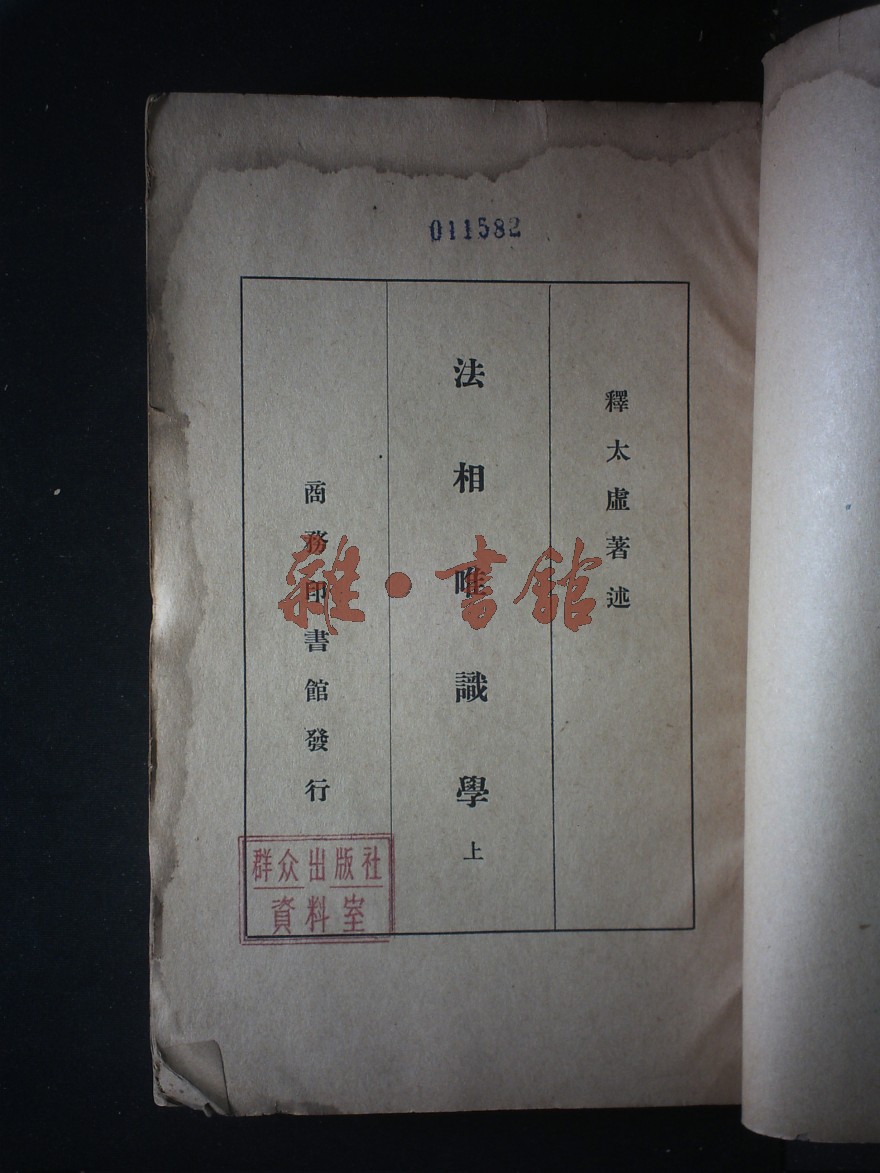 011582
釋太虛著述
法相唯識學 上
商務印書館發行
雜·書館
群众出版社
資料室